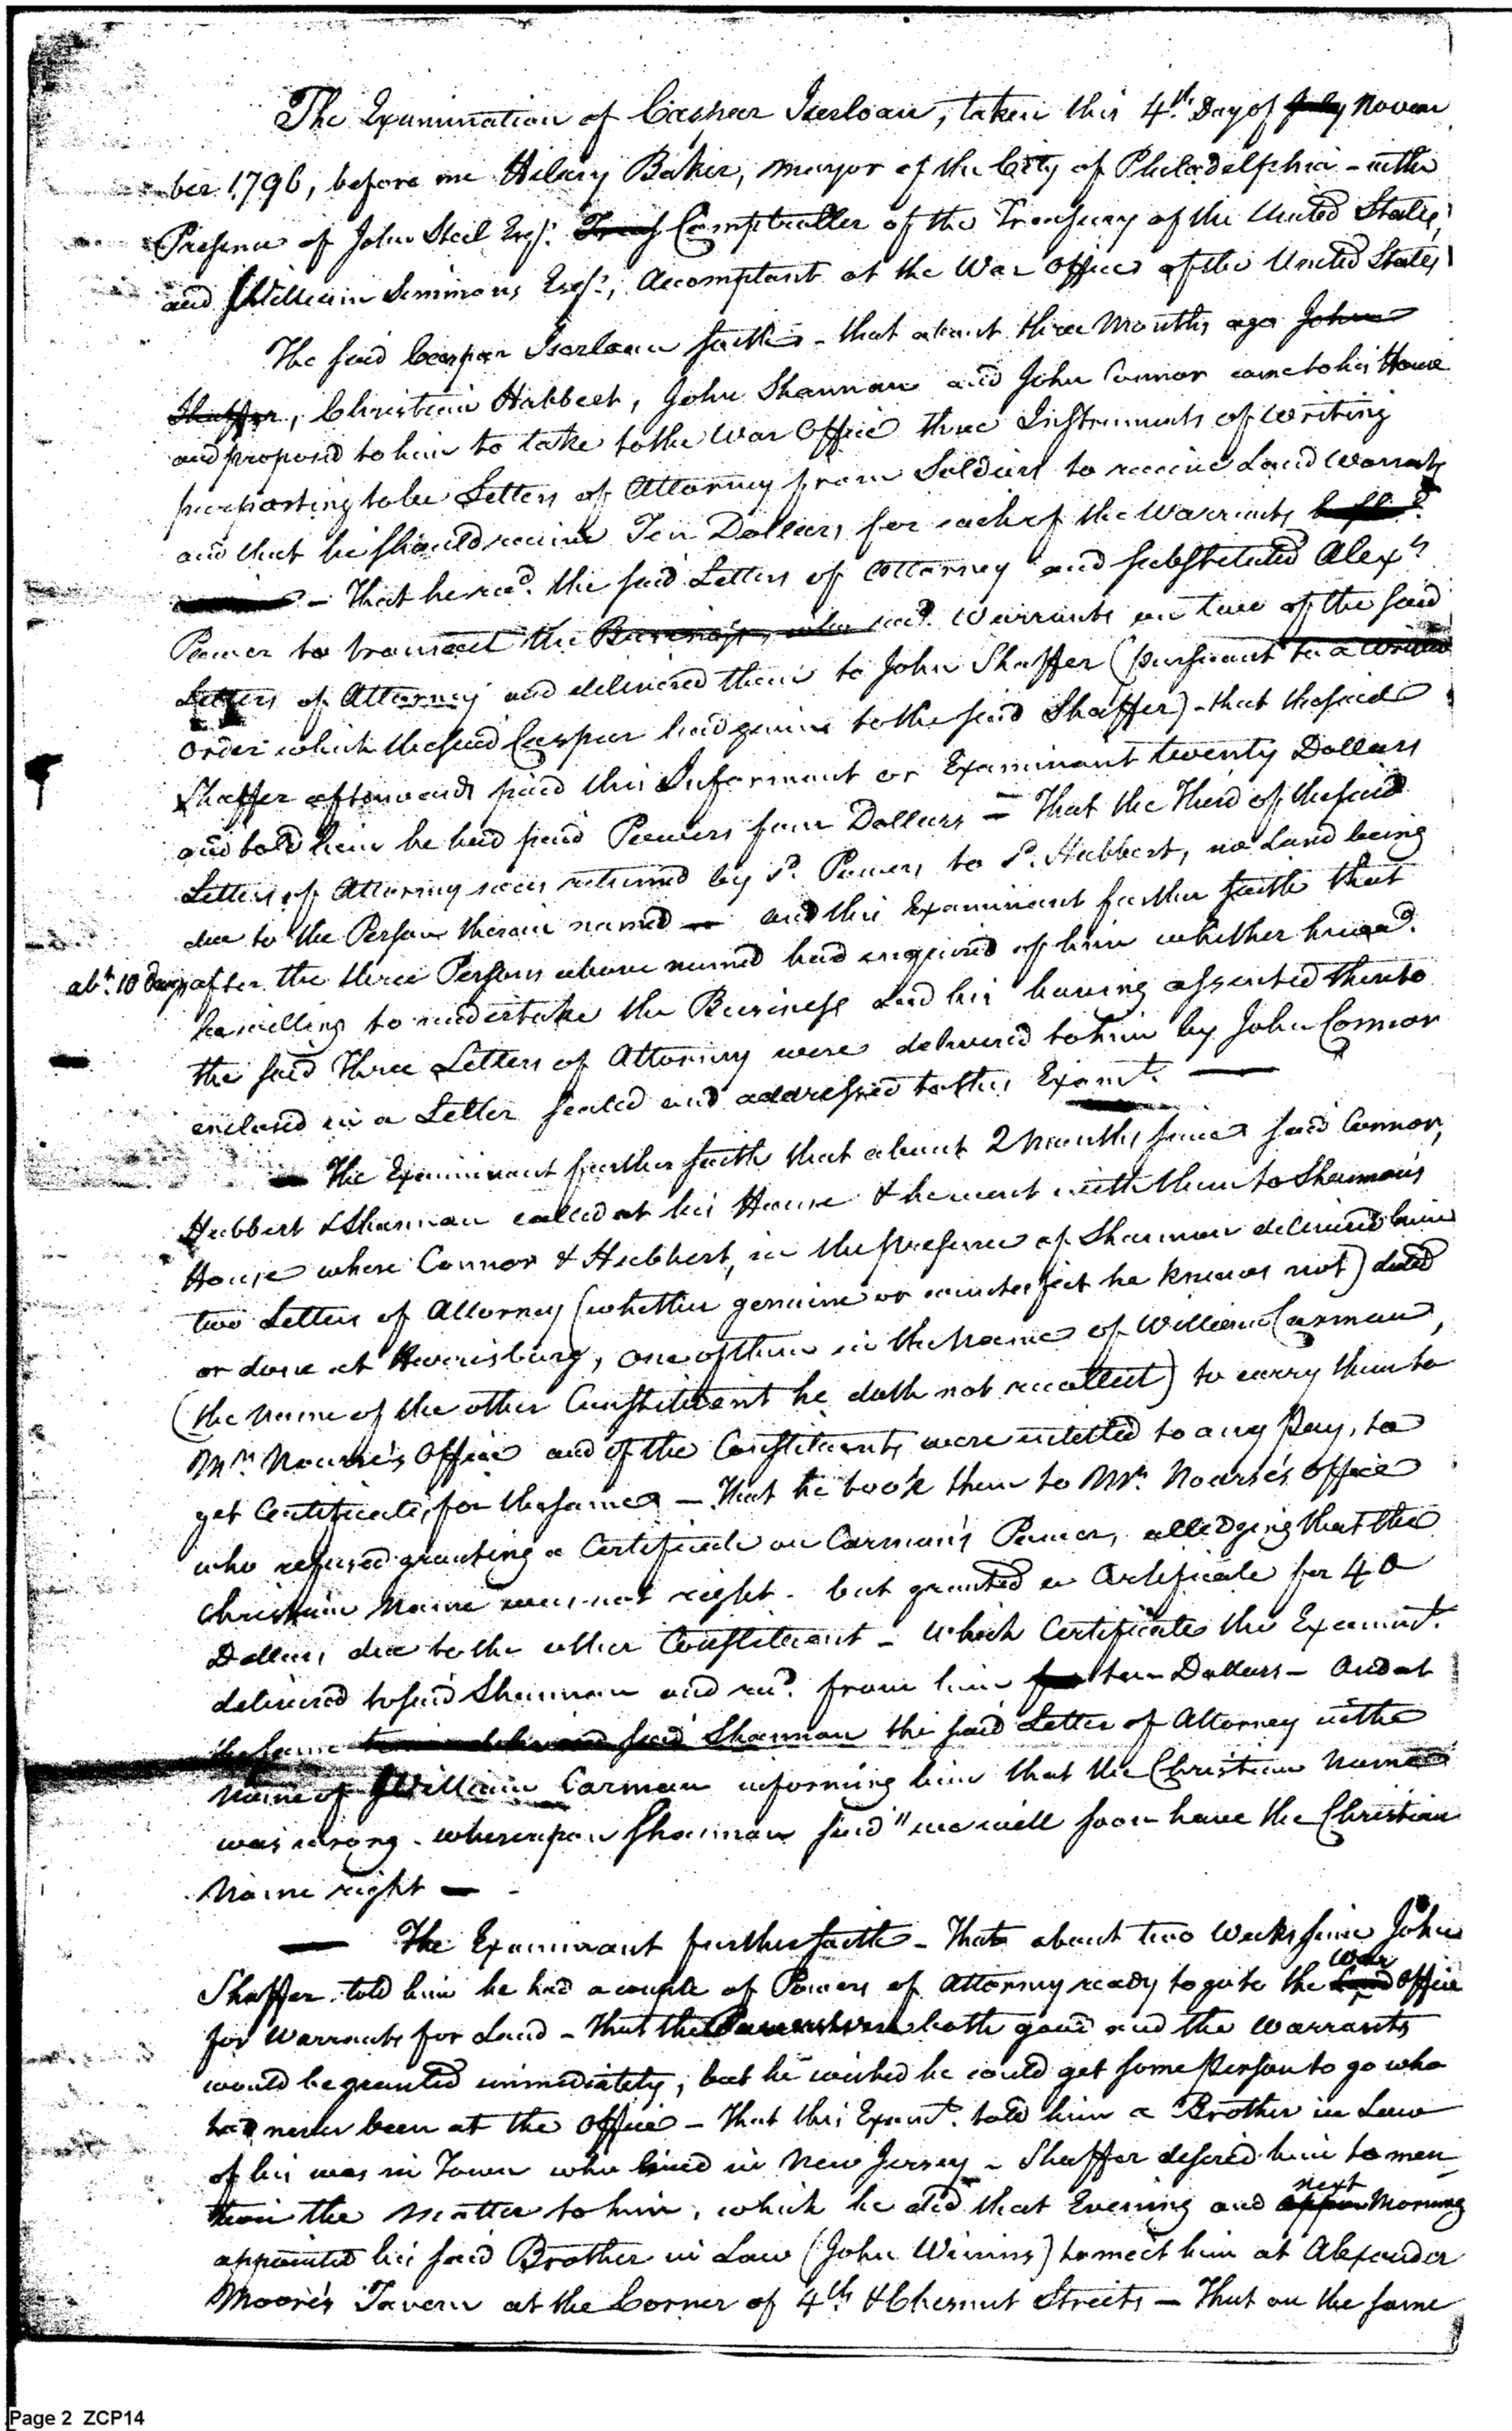 The Examination of Caspar Iserloan, taken this 4th. Day of July Novem
ber 1796, before me Hilary Baker, Mayor of the City of Philadelphia - in the
Presence of John Steel Esqr. Treasy Comptroller of the Treasury of the United States,
and William Simmons Esqr., Accomptant at the War Office of the United States
The said Caspar Iserloan saith - that about three Months ago John
Shaffer, Christian Hubbert, John Shannan and John Connor came to his House
and proposed to him to take to the War Office three Instruments of Writing
purporting to be Letters of Attorney from Soldiers to receive Land Warrants
and that he should receive Ten Dollars for each of the Warrants
- That he recd. the said Letters of Attorney and substituted Alexr
Power to transact the Business, who recd. Warrants on two of the said
Letters of Attorney and delivered them to John Shaffer (pursuant to a written
order which the said Caspar had given to the said Shaffer) - that the said
Shaffer afterwards paid this Informant or Examinant twenty Dollars
and told him he had paid Powers four Dollars - That the Third of the said
Letters of Attorney was returned by sd. Powers to sd. Hubbert, no Land being
due to the Person therein named - and this Examinant further saith that
abt. 10 days after the three Persons above named had enquired of him whether he
be willing to undertake the Business and his having assented thereto
the said Three Letters of Attorney were delivered to him by John Connor
enclosed in a Letter sealed and addressed to this Examt. -
- The Examinant further saith that about 2 Months since said Connor,
Hubbert & Shannan called at his House & he went with them to Shannan's
House where Connor & Hubbert, in the presence of Shannan delivered him
two Letters of Attorney (whether genuine or counterfeit he knows not) dated
or done at Harrisburg, one of them in the Name of William Carman,
(the Name of the other Constituent he doth not recollect) to carry them to
Mr. Nourse's Office and if the Constituents were intitled to any Pay, to
get Certificates for the same - That he took them to Mr. Nourse's office
who refused granting a Certificate on Carman's Power, alledging that the
Christian Name was not right - but granted a Certificate for 40
Dollars due to the other Constituent - which Certificate the Examint.
delivered to said Shannan and recd. from him ten Dollars - And at
the same time delivered said Shannan the said Letter of Attorney in the
Name of William Carman informing him that the Christian Name
was wrong - whereupon Shannan said "we will soon have the Christian
Name right -
- The Examinant further saith - That about two Weeks since John
Shaffer told him he had a couple of Powers of Attorney ready to go to the Land War Office
for Warrants for Land - That the Powers were both good and the Warrants
would be granted immediately, but he wished he could get some Person to go who
had never been at the Office - That this Examt. told him a Brother in Law
of his was in Town who lived in New Jersey - Shaffer desired him to men
tion the Matter to him, which he did that Evening and appoin next Morning
appointed his said Brother in Law (John Winins) to meet him at Alexander
Moore's Tavern at the Corner of 4th. & Chesnut Streets - That on the same
Page 2 ZCP14